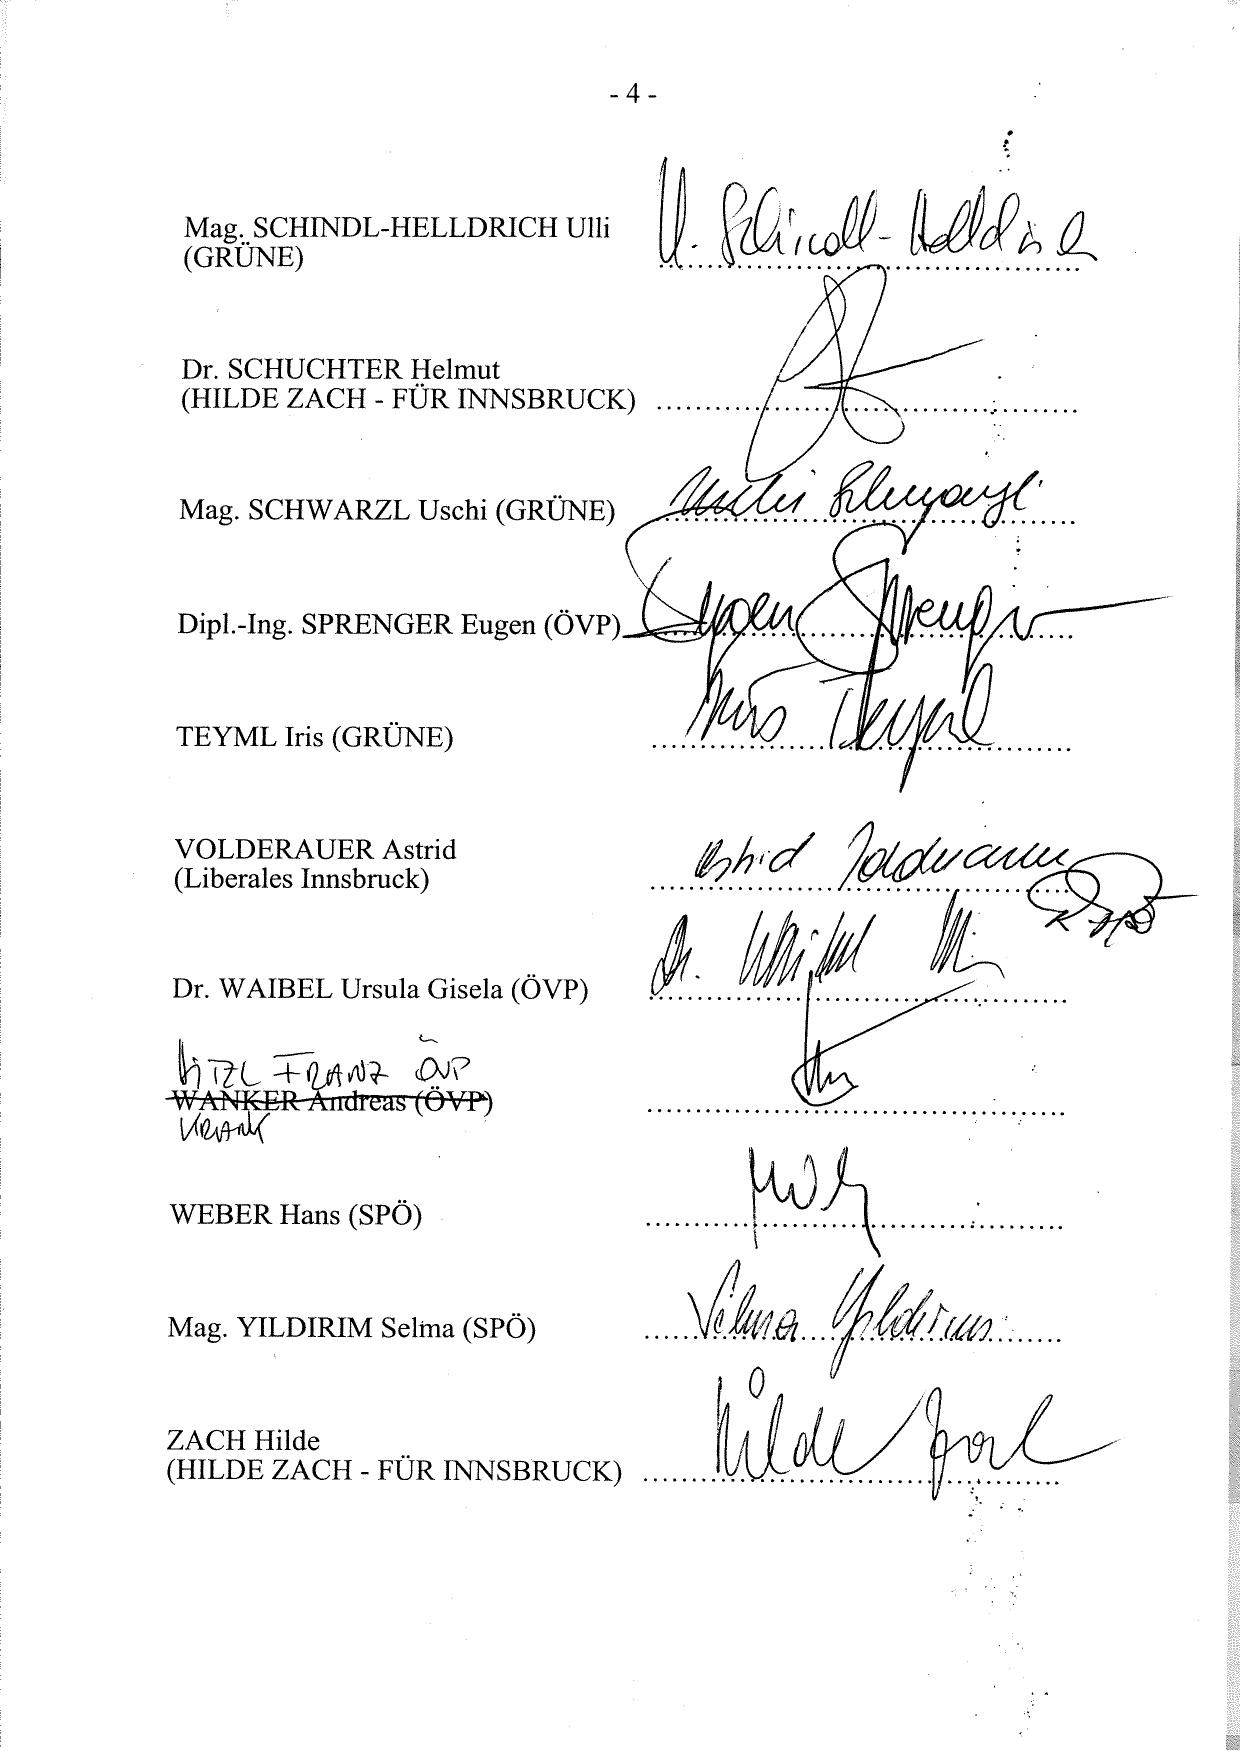 - 4 -
Mag. SCHINDL-HELLDRICH Ulli
(GRÜNE)
U. Schindl-Helldrich
Dr. SCHUCHTER Helmut
(HILDE ZACH - FÜR INNSBRUCK)
Mag. SCHWARZL Uschi (GRÜNE)
Uschi Schwarzl
Dipl.-Ing. SPRENGER Eugen (ÖVP)
Eugen Sprenger
TEYML Iris (GRÜNE)
Iris Teyml
VOLDERAUER Astrid
(Liberales Innsbruck)
Astrid Volderauer
Dr. WAIBEL Ursula Gisela (ÖVP)
Dr. Waibel
HITZL FRANZ ÖVP
WANKER Andreas (ÖVP)
KRANK
WEBER Hans (SPÖ)
Mag. YILDIRIM Selma (SPÖ)
Selma Yildirim
ZACH Hilde
(HILDE ZACH - FÜR INNSBRUCK)
Hilde Zach